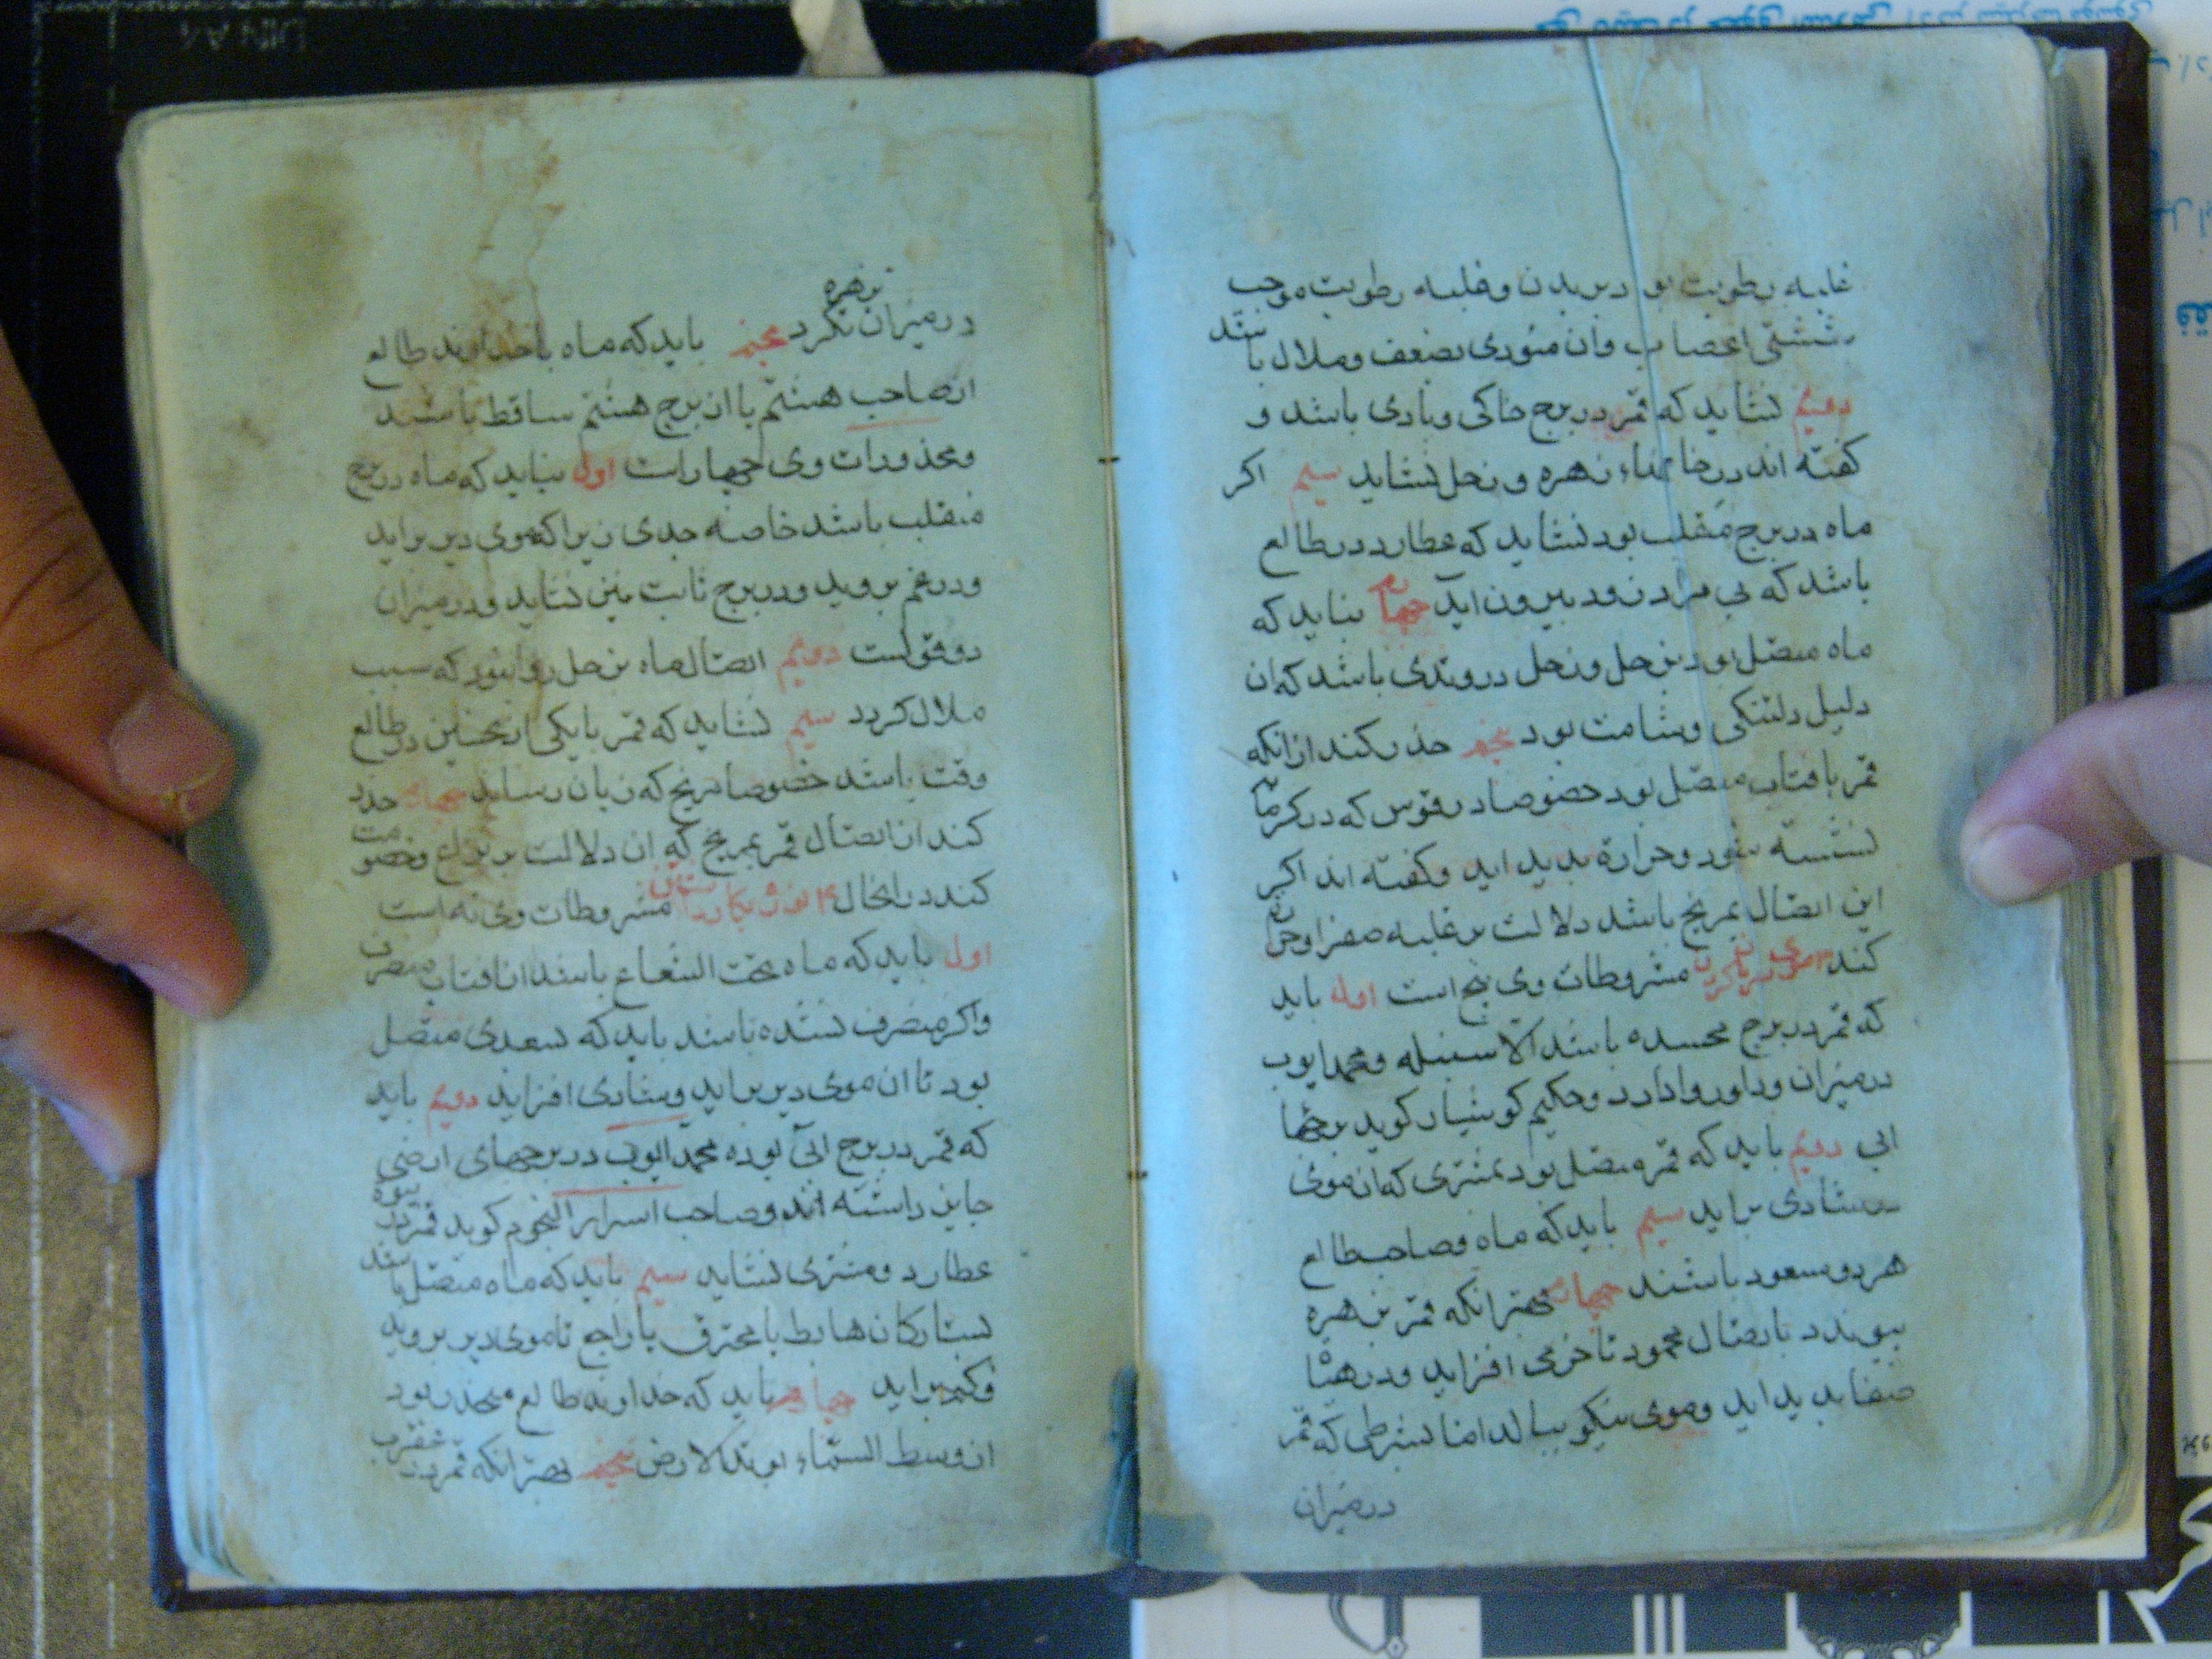 غلبه رطوبت بود در بدن و غلبه رطوبت موجب
سستی اعصاب وان مودی بضعف و ملال باشد
دویم نشاید که قمر در برج خاکی و بادی باشد و
کفته اند در خانهاء زهره و زحل نشاید سیم اکر
ماه در برج منقلب بود نشاید که عطارد در طالع
باشد که بی مراد زود بیرون اید چهارم نباید که
ماه متصل بود بزحل و زحل در وتدی باشد که ان
دلیل دلتنکی و شامت بود پنجم حذر کند از انکه
قمر بافتاب متصل بود خصوصا در قوس که در کرمابه
نشسته شود و حرارة بدید اید و کفته اند اکر
این اتصال بمریخ باشد دلالت بر غلبه صفرا و خون
کند موی سر باز کردن مشروطات وی پنج است اول باید
که قمر در برج مجسده باشد الا سنبله و محمد ایوب
در میزان و داور وا دارد و حکیم کوشیار کوید برجهاء
ابی دویم باید که قمر متصل بود بمشتری که ان موی
بشادی براید سیم باید که ماه و صاحب طالع
هر دو مسعود باشند چهارم بهتر انکه قمر بزهره
بیوندد باتصال محمود تا خرمی افزاید و در
صفا بدید اید و موی نیکو ببالد اما بشرطی که قمر
در میزان
در میزان نکرد بزهره پنجم باید که ماه با خداوند طالع
از صاحب هشتم یا از برج هشتم ساقط باشد
و محذورات وی چهار است اول نباید که ماه در برج
منقلب باشد خاصه جدی زیرا که موی دیر براید
و در غم بروید و در برج ثابت نیز نشاید و در میزان
دو قولست دویم اتصال ماه بزحل روا نبود که سبب
ملال کردد سیم نشاید که قمر با یکی از نحسین در طالع
وقت باشد خصوصا مریخ که زیان رساند چهارم حذر
کند از اتصال قمر بمریخ که ان دلالت بر نزاع و خصومت
کند در انحال نوره بکار داشتن مشروطات وی نه است
اول باید که ماه تحت الشعاع باشد از افتاب منصرف
و اکر منصرف نشده باشد باید که بسعدی متصل
بود تا ان موی دیر براید و شادی افزاید دویم باید
که قمر در برج ابی بود و محمد ایوب در برجهای ارضی
جایز داشته اند و صاحب اسرار النجوم کوید قمر در بیوت
عطارد و مشتری نشاید سیم باید که ماه متصل باشد
بستارکان هابط یا محترق یا راجع تا موی دیر بروید
و کمتر براید چهارم باید که خداوند طالع منحدر بود
از وسط السماء بوتد الارض پنجم بهتر انکه قمر در عقرب